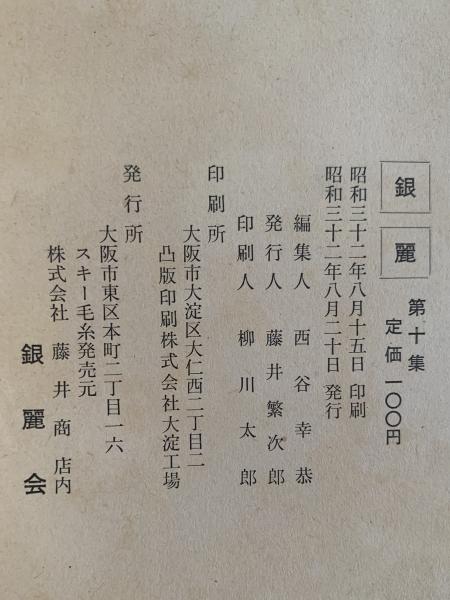 銀麗
第十集
定価 一〇〇円
昭和三十二年八月十五日 印刷
昭和三十二年八月二十日 発行
編集人 西谷幸恭
発行人 藤井繁次郎
印刷人 柳川太郎
印刷所
大阪市大淀区大仁西二丁目二
凸版印刷株式会社大淀工場
発行所
大阪市東区本町二丁目一六
スキー毛糸発売元
株式会社 藤井商店内
銀麗会